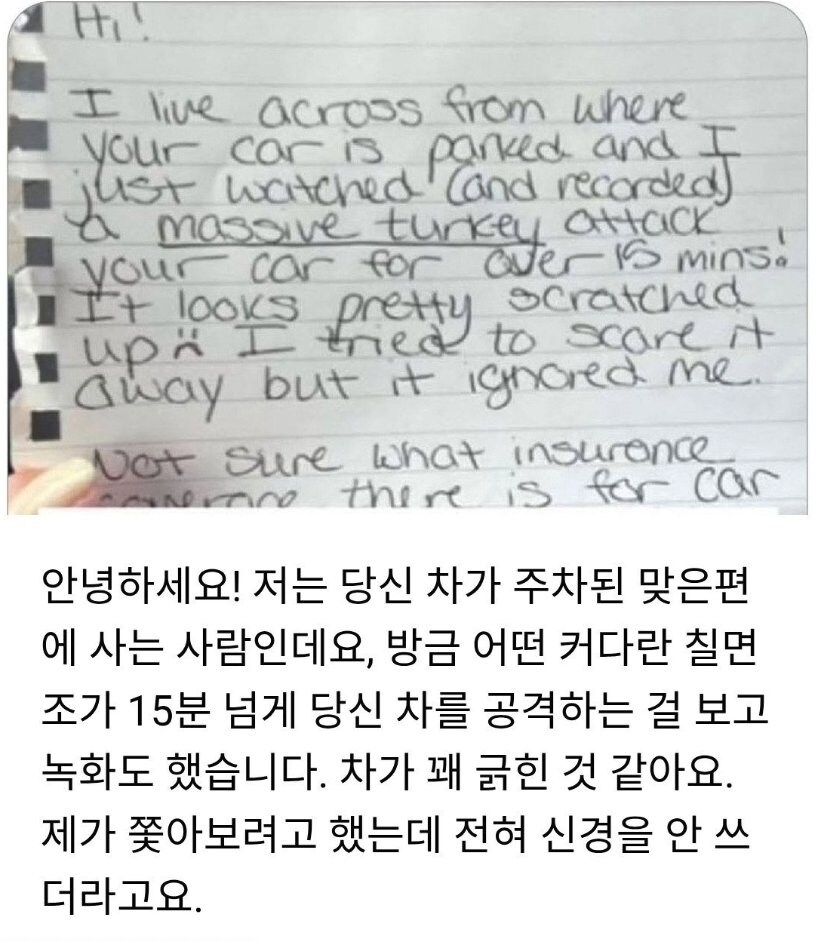 Hi!
I live across from where
your car is parked and I
just watched (and recorded)
a massive turkey attack
your car for over 15 mins!
It looks pretty scratched
up :( I tried to scare it
away but it ignored me.
Not sure what insurance
coverage there is for car
안녕하세요! 저는 당신 차가 주차된 맞은편
에 사는 사람인데요, 방금 어떤 커다란 칠면
조가 15분 넘게 당신 차를 공격하는 걸 보고
녹화도 했습니다. 차가 꽤 긁힌 것 같아요.
제가 쫓아보려고 했는데 전혀 신경을 안 쓰
더라고요.